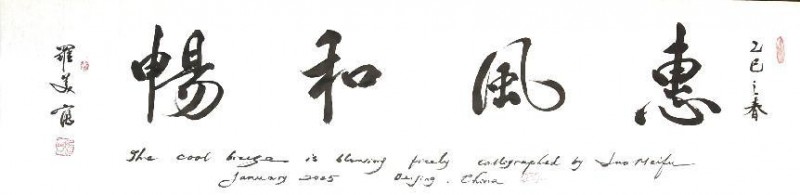 乙巳之春
惠風和暢
羅美富
The cool breeze is blowing freely calligraphed by Luo Meifu
January 2025 Beijing. China